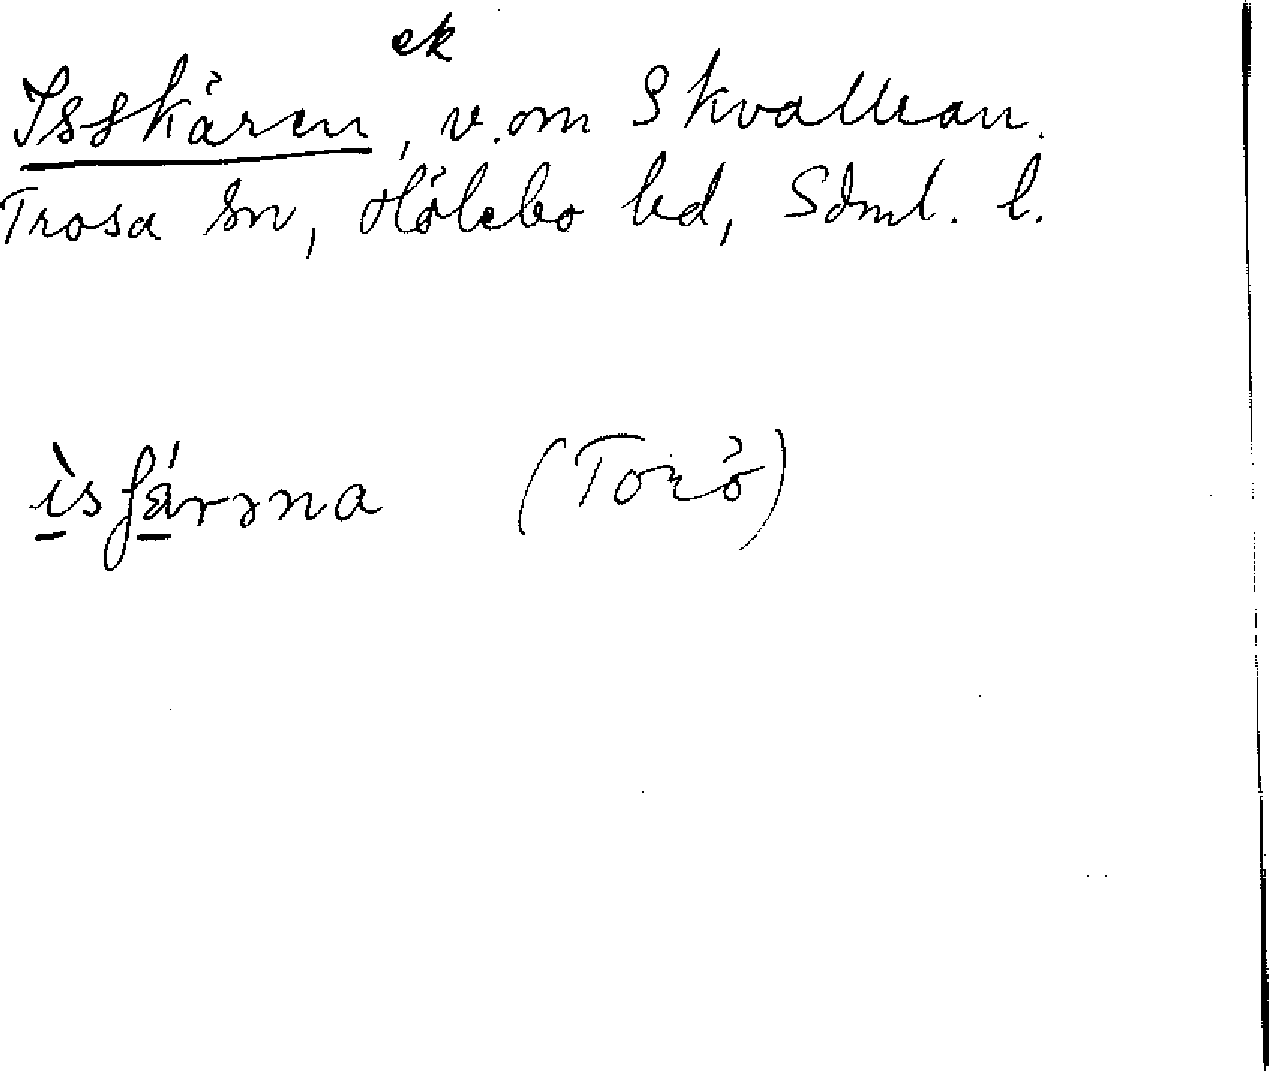 ek
Isskären, v. om Skvallran.
Trosa sn, Hölebo hd, Sdml. l.
ìsʃä́rəna (Torö)